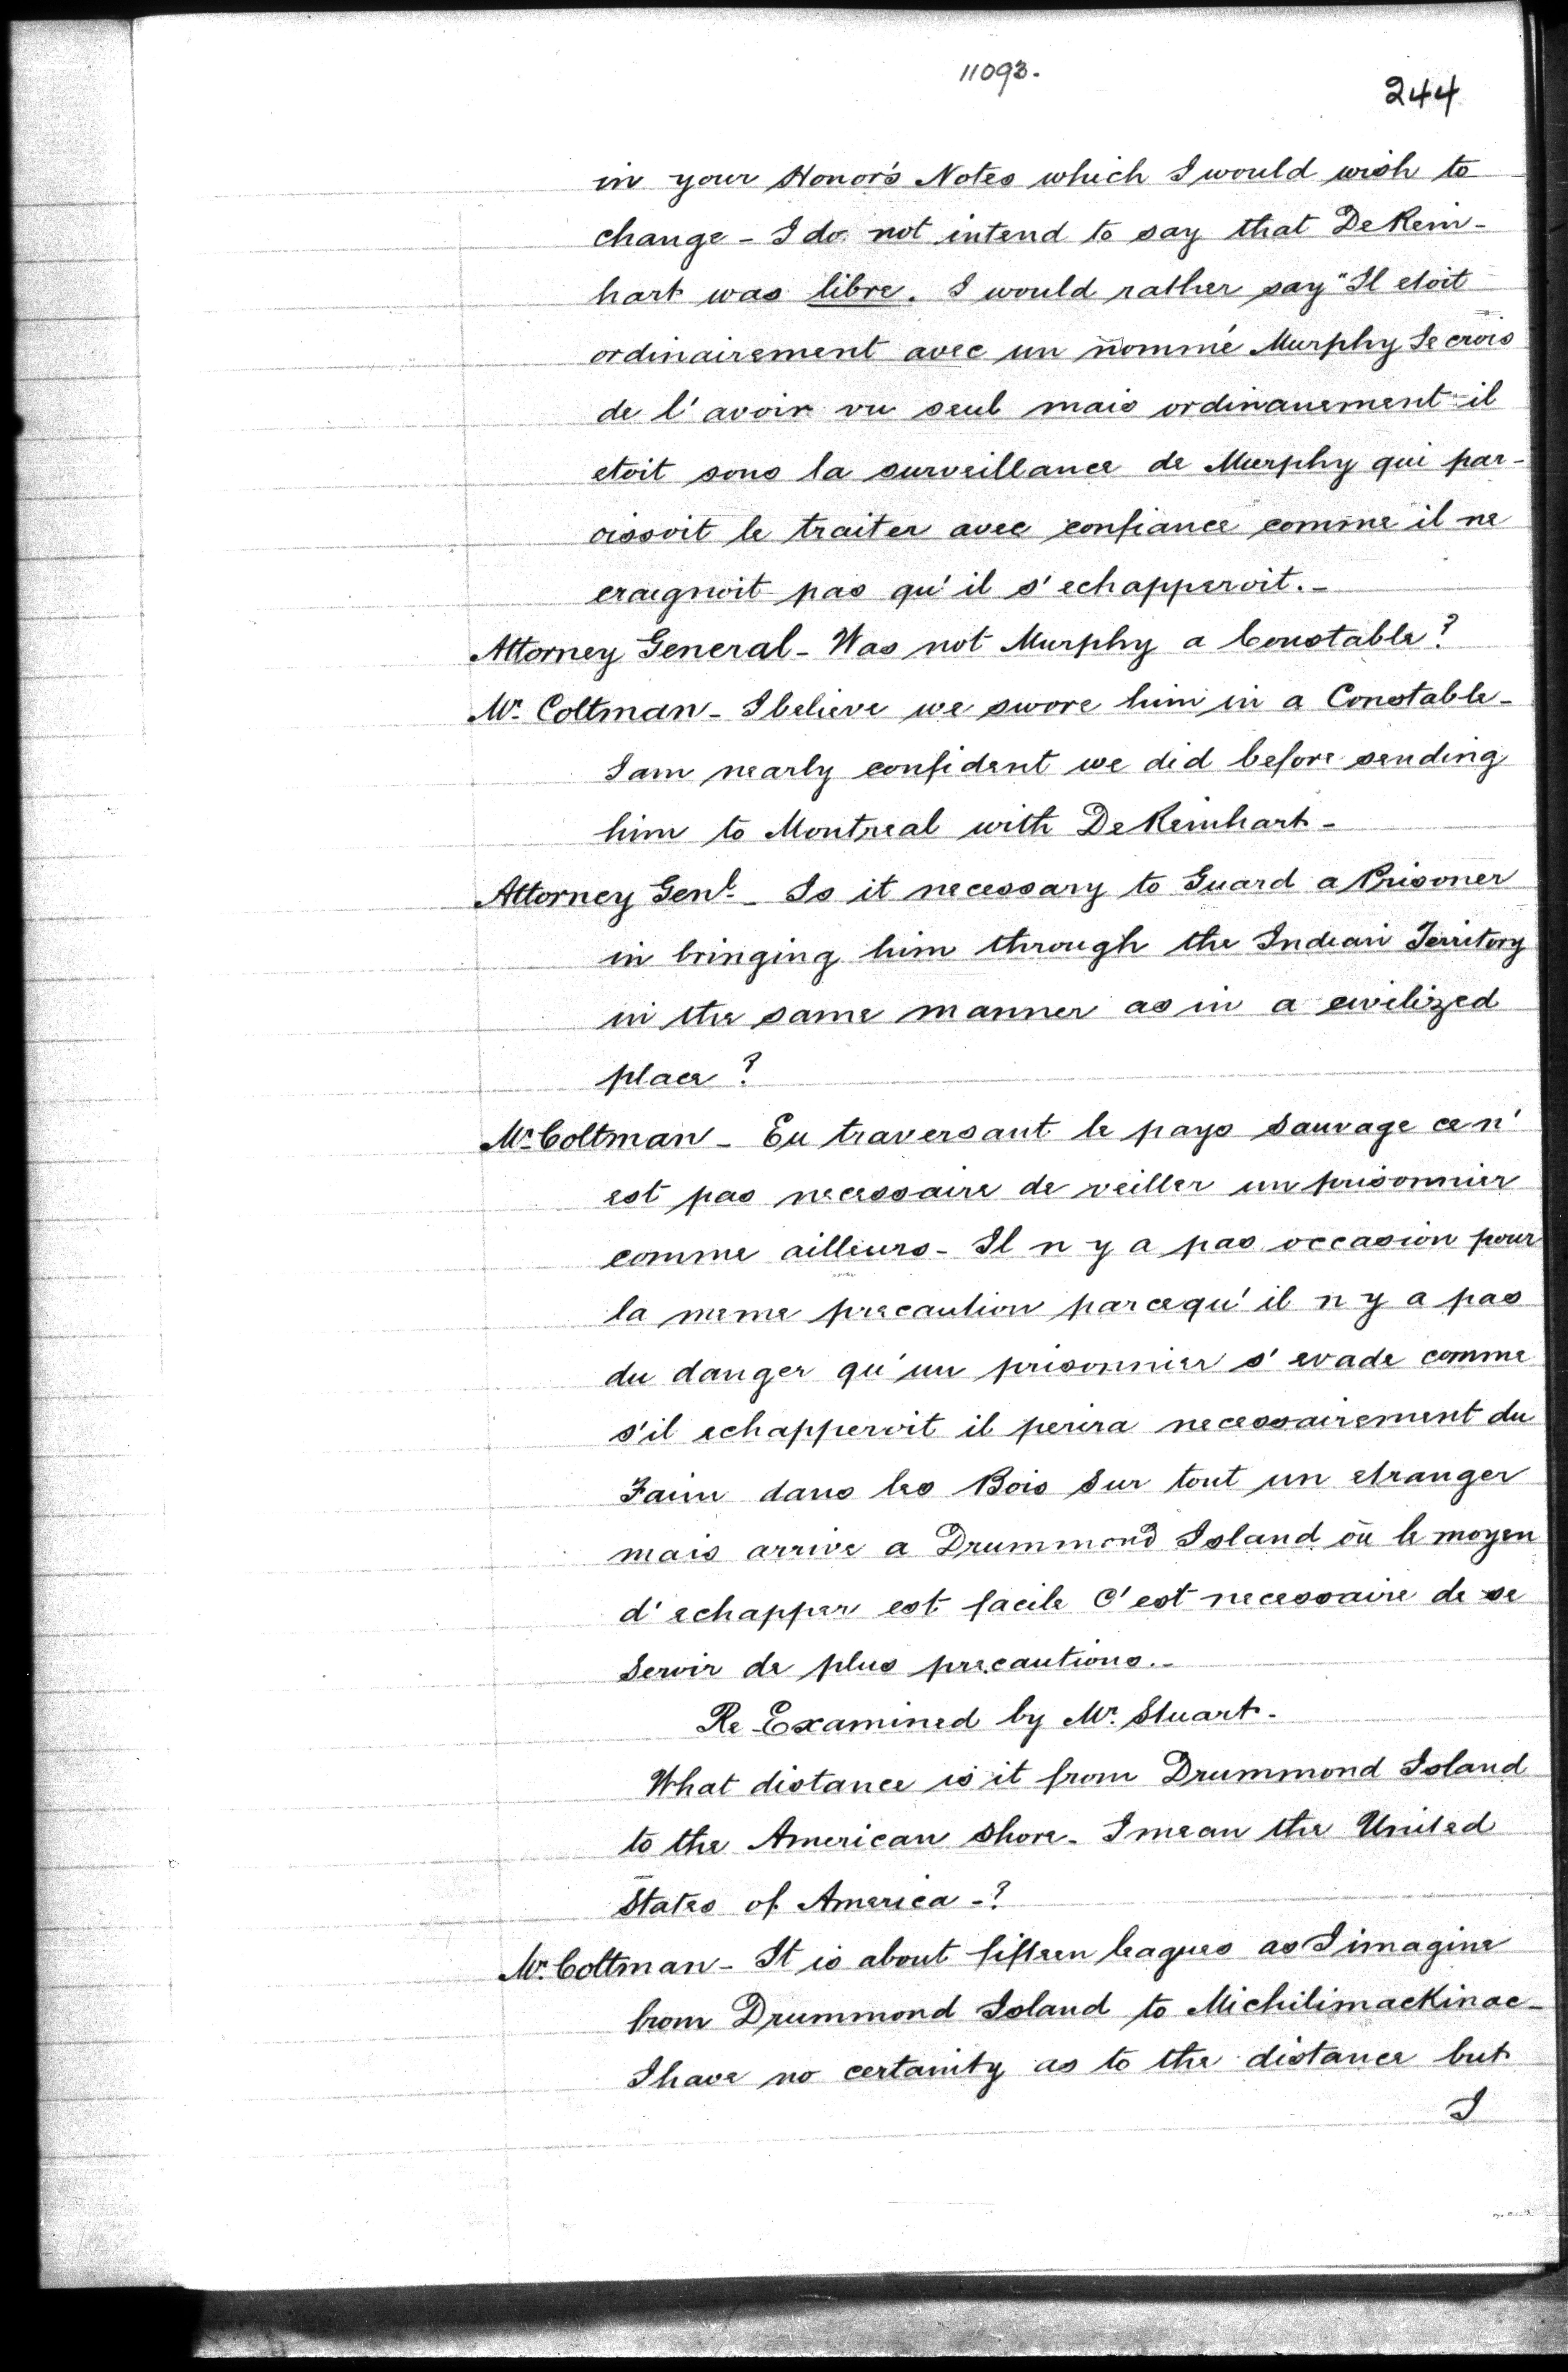 11093.
244
in your Honor's Notes which I would wish to
change - I do not intend to say that De Rein-
hart was libre. I would rather say "Il etoit
ordinairement avec un nommé Murphy Je crois
de l'avoir vu seul mais ordinairement il
etoit sous la surveillance de Murphy qui par-
oissoit le traiter avec confiance comme il ne
craignoit pas qu'il s'echapperoit. -
Attorney General - Was not Murphy a Constable?
Mr. Coltman - I believe we swore him in a Constable -
I am nearly confident we did before sending
him to Montreal with De Reinhart -
Attorney Genl. - Is it necessary to Guard a Prisoner
in bringing him through the Indian Territory
in the same manner as in a civilized
place?
Mr. Coltman - En traversant le pays sauvage ce n'
est pas necessaire de veiller un prisonnier
comme ailleurs - Il n y a pas occasion pour
la meme precaution parcequ'il n y a pas
du danger qu'un prisonnier s'evade comme
s'il echapperoit il perira necessairement du
Faim dans les Bois Sur tout un etranger
mais arrive a Drummond Island où le moyen
d'echapper est facile C'est necessaire de se
Servir de plus precautions. -
Re-Examined by Mr. Stuart -
What distance is it from Drummond Island
to the American Shore - I mean the United
States of America - ?
Mr. Coltman - It is about fifteen leagues as I imagine
from Drummond Island to Michilimackinac -
I have no certainty as to the distance but
I